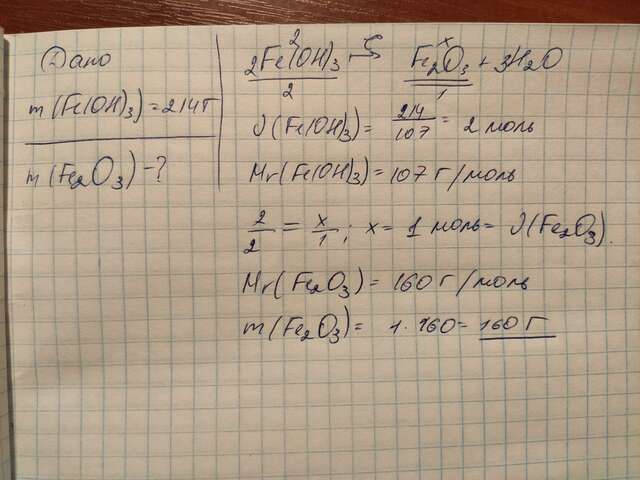 Дано
m (Fe(OH)3) = 214 г
m (Fe2O3) - ?
2 x
2Fe(OH)3 →t Fe2O3 + 3H2O
2 1
ν (Fe(OH)3) = 214/107 = 2 моль
Mr (Fe(OH)3) = 107 г/моль
2/2 = x/1 ; x = 1 моль = ν(Fe2O3).
Mr (Fe2O3) = 160 г/моль
m (Fe2O3) = 1 · 160 = 160 г